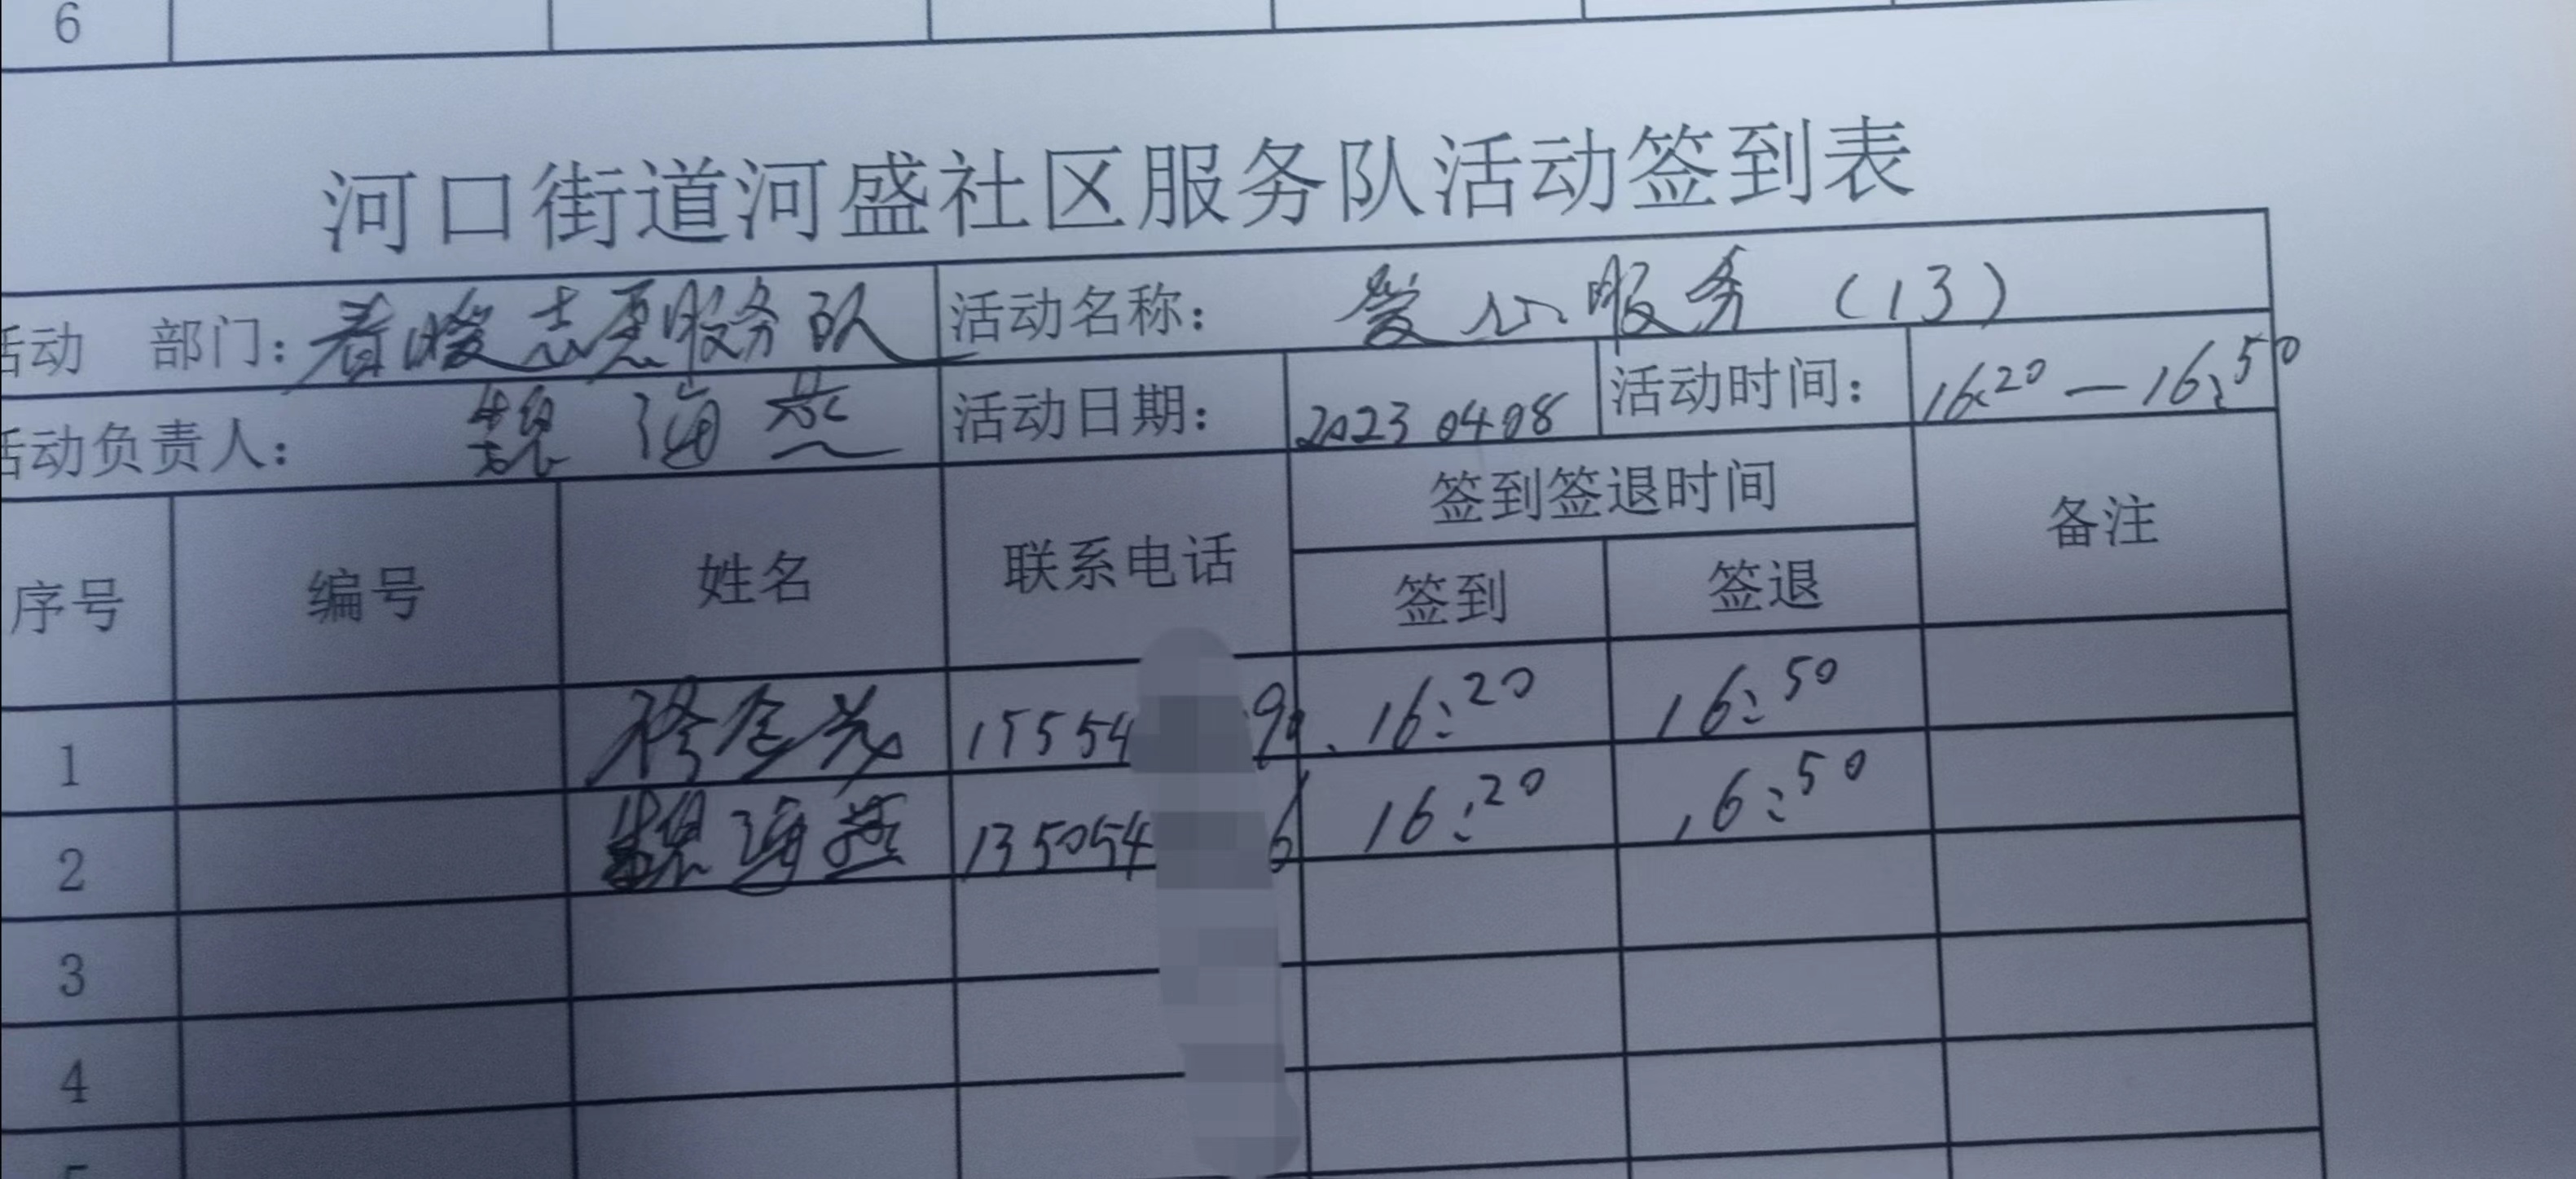 6
河口街道河盛社区服务队活动签到表
活动 部门：春暖志愿服务队 活动名称： 爱心服务（13）
活动负责人： 海燕 活动日期： 20230408 活动时间： 16:20—16:50
序号 编号 姓名 联系电话 签到签退时间 备注
签到 签退
1 15554 9 16:20 16:50
2 海燕 135054 6 16:20 16:50
3
4
5